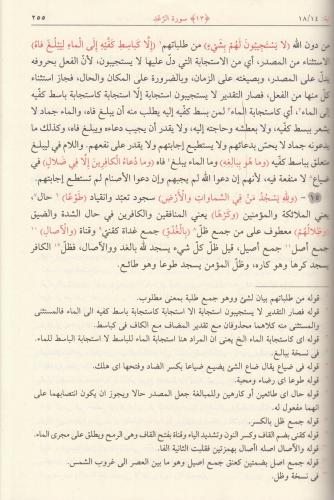 ١٨/١٤ ﴿١٣﴾ سورة الرَّعْدِ ٢٥٥
من دون الله (لَا يَسْتَجِيبُونَ لَهُم بِشَيْءٍ) من طلباتهم (إِلَّا كَبَاسِطِ كَفَّيْهِ إِلَى الْمَاءِ لِيَبْلُغَ فَاهُ)
الاستثناء من المصدر، أي من الاستجابة التي دلّ عليها لا يستجيبون، لأنّ الفعل بحروفه
يدلّ على المصدر، وبصيغته على الزمان، وبالضرورة على المكان والحال، فجاز استثناء
كلّ منها من الفعل، فصار التقدير لا يستجيبون استجابة إلّا استجابة كاستجابة باسط كفّيه
إلى الماء، أي كاستجابة الماء لمن بسط كفّيه إليه يطلب منه أن يبلغ فاه، والماء جماد لا
يشعر ببسط كفّيه، ولا بعطشه وحاجته إليه، ولا يقدر أن يجيب دعاءه ويبلغ فاه، وكذلك ما
يدعونه جماد لا يحسّ بدعائهم ولا يستطيع إجابتهم ولا يقدر على نفعهم. واللام في ليبلغ
متعلق بباسط كفّيه (وَمَا هُوَ بِبَالِغِهِ) وما الماء ببالغ فاه (وَمَا دُعَاءُ الْكَافِرِينَ إِلَّا فِي ضَلَالٍ) في
ضياع لا منفعة فيه، لأنهم إن دعوا الله لم يجبهم وإن دعوا الأصنام لم تستطع إجابتهم.
١٥ - (وَلِلَّهِ يَسْجُدُ مَن فِي السَّمَاوَاتِ وَالْأَرْضِ) سجود تعبّد وانقياد (طَوْعًا) حال،
يعني الملائكة والمؤمنين (وَكَرْهًا) يعني المنافقين والكافرين في حال الشدة والضيق
(وَظِلَالُهُم) معطوف على من جمع ظلّ (بِالْغُدُوِّ) جمع غداة كقنيّ وقناة (وَالْآصَالِ)
جمع أصل جمع أصيل، قيل ظلّ كلّ شيء يسجد لله بالغدو والآصال، فظلّ الكافر
يسجد كرها وهو كاره، وظلّ المؤمن يسجد طوعا وهو طائع.
قوله من طلباتهم بيان لشئ وهو جمع طلبة بمعنى مطلوب.
قوله فصار التقدير لا يستجيبون استجابة الا استجابة كاستجابة باسط كفيه الى الماء فالمستثنى
والمستثنى منه كلاهما محذوفان مع تقدير المضاف مع الكاف فى كباسط.
قوله اى كاستجابة الماء الخ يعنى ان المراد هنا استجابة الماء للباسط لا استجابة الباسط للماء.
فى نسخة ببالغ.
قوله فى ضياع يقال ضاع الشئ يضيع ضياعا بكسر الضاد وفتحها اى هلك.
قوله طوعا اى رضاء ومحبة.
قوله حال اى طائعين أو كارهين وللمبالغة جعل المصدر حالا ويجوز ان يكون انتصابهما على
انهما مفعول له.
قوله جمع ظل بالكسر.
قوله كقنى بضم القاف وكسر النون وتشديد الياء وقناة بفتح القاف وهى الرمح ويطلق على مجرى الماء.
قوله والآصال اصله أأصال بهمزتين فقلبت الثانية الفا.
قوله جمع اصل بضمتين كعنق جمع اصيل وهو ما بين العصر الى غروب الشمس.
فى نسخة وظل.